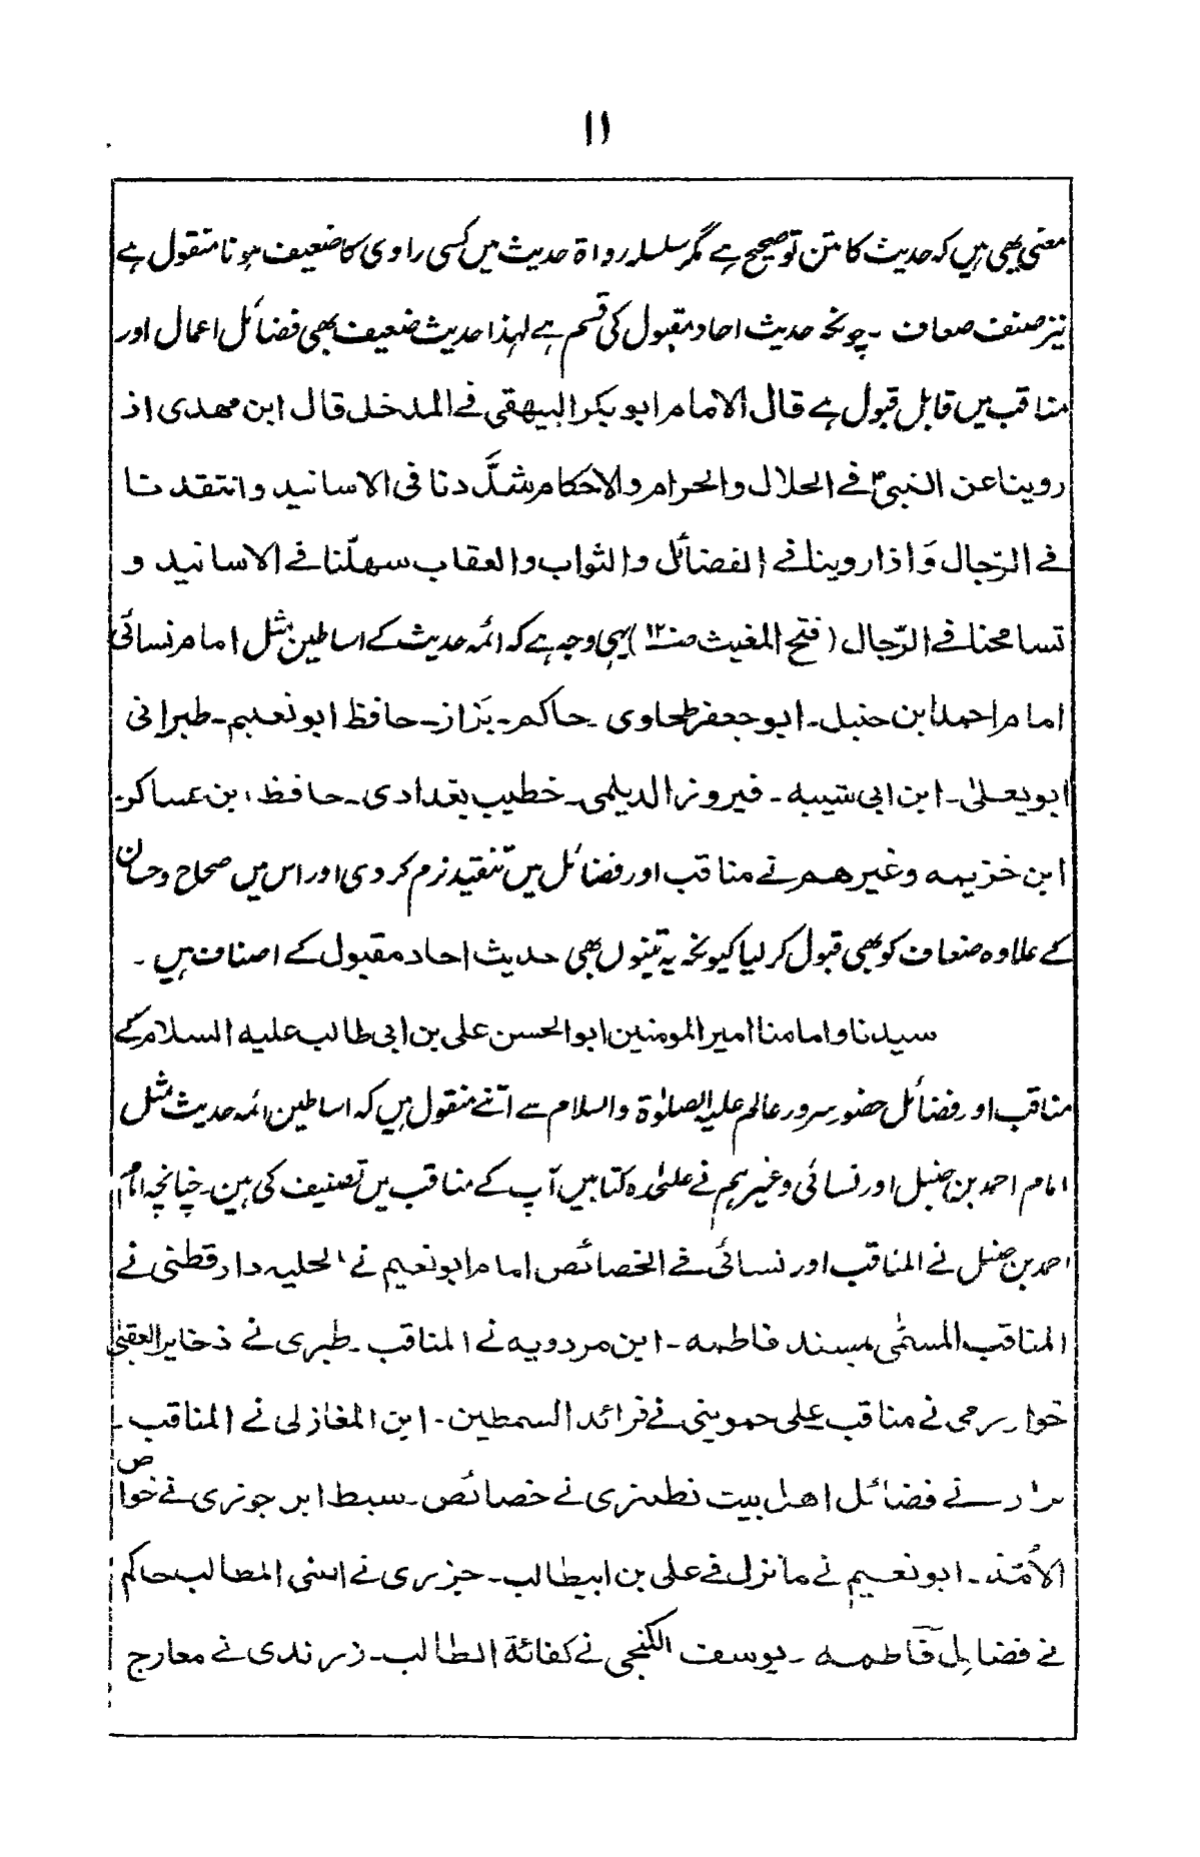 ۱۱
معنی بھی ہیں کہ حدیث کا متن تو صحیح ہے مگر سلسلہ رواۃ حدیث میں کسی راوی کا ضعیف ہونا منقول ہے
نیز صنف ضعاف ۔ چونکہ حدیث احاد مقبول کی قسم ہے لہذا حدیث ضعیف بھی فضائل اعمال اور
مناقب میں قابل قبول ہے قال الامام ابو بکر البیھقی فے المدخل قال ابن مھدی اذ
روینا عن النبیؐ فے الحلال والحرام والاحکام شدَّدنا فی الاسانید وانتقدنا
فے الرّجال وَاذا روینا فے الفضائل والثواب والعقاب سھلّنا فے الاسانید و
تسامحنا فے الرّجال (فتح المغیث صـ۱۲) یہی وجہ ہے کہ ائمہ حدیث کے اساطین مثل امام نسائی
امام احمد ابن حنبل۔ ابو جعفر طحاوی ۔ حاکم۔ بَزاز۔ حافظ ابو نعیم۔ طبرانی
ابو یعلیٰ۔ ابن ابی شیبہ ۔ فیروز الدیلمی۔ خطیب بغدادی۔ حافظ ابن عساکر۔
ابن خزیمہ وغیرھم نے مناقب اور فضائل میں تنقید نرم کر دی اور اس میں صحاح وحسان
کے علاوہ ضعاف کو بھی قبول کر لیا کیونکہ یہ تینوں بھی حدیث احاد مقبول کے اصناف ہیں ۔
سیدنا و امامنا امیر المومنین ابو الحسن علی بن ابی طالب علیہ السلام کے
مناقب اور فضائل حضور سرور عالم علیہ الصلوٰۃ والسلام سے اتنے منقول ہیں کہ اساطین ائمہ حدیث مثل
امام احمد بن حنبل اور نسائی وغیرہم نے علیٰحدہ کتابیں آپ کے مناقب میں تصنیف کی ہیں۔ چنانچہ امام
احمد بن حنبل نے المناقب اور نسائی نے الخصائص امام ابو نعیم نے الحلیہ دار قطنی نے
المناقب المسمّٰی بمسند فاطمہ ۔ ابن مردویہ نے المناقب ۔ طبری نے ذخایر العقبیٰ
خوارزمی نے مناقب علی حموینی نے فرائد السمطین ۔ ابن المغازلی نے المناقب ۔
نے فضائل اھل بیت نطنزی نے خصائص ۔ سبط ابن جوزی نے خواص
الأمّۃ ۔ ابو نعیم نے مانزل فے علی بن ابیطالب ۔ جزری نے اسنی المطالب حاکم
نے فضایل فاطمہ ۔ یوسف الکنجی نے کفائۃ الطالب ۔ زرندی نے معارج